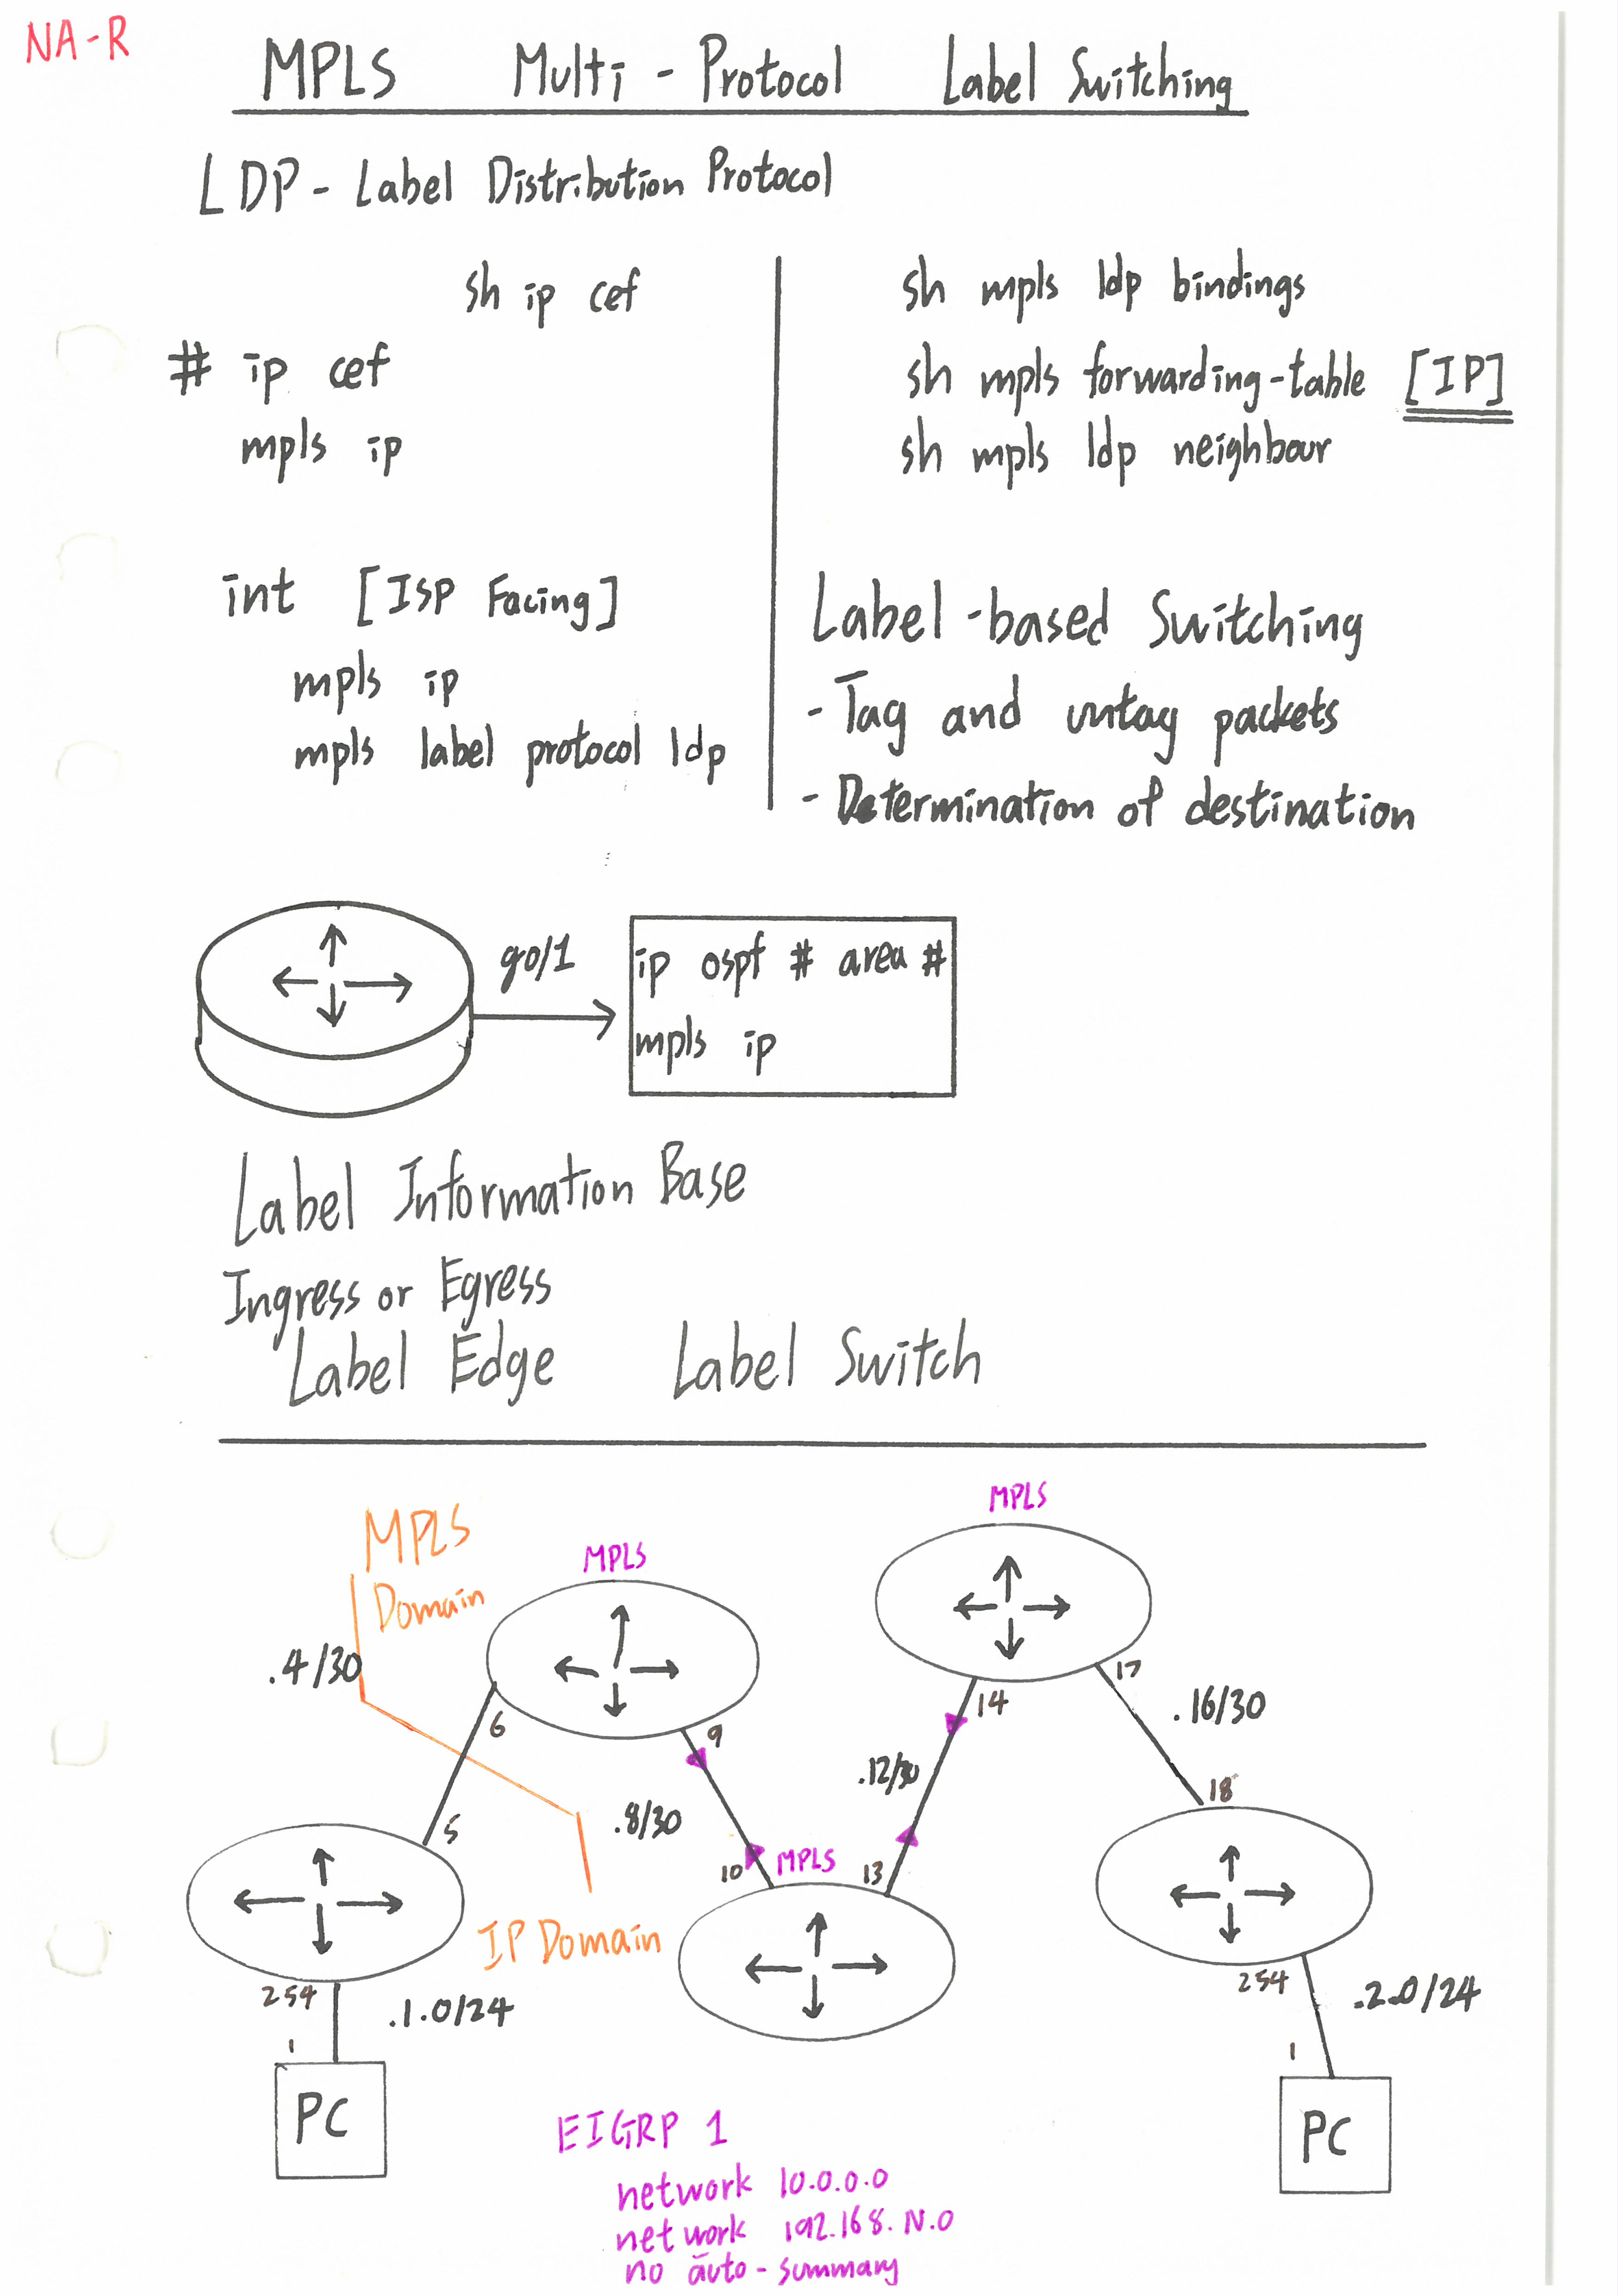 NA-R
MPLS Multi-Protocol Label Switching
LDP - Label Distribution Protocol
sh ip cef
# ip cef
mpls ip
int [ISP Facing]
mpls ip
mpls label protocol ldp
sh mpls ldp bindings
sh mpls forwarding-table [IP]
sh mpls ldp neighbour
Label-based Switching
- Tag and untag packets
- Determination of destination
g0/1
ip ospf # area #
mpls ip
Label Information Base
Ingress or Egress
Label Edge Label Switch
MPLS
Domain
MPLS
MPLS
.4/30
6
9
14
17
.16/30
.12/30
18
5
.8/30
10
MPLS
13
IP Domain
254
.1.0/24
254
.2.0/24
1
1
PC
PC
EIGRP 1
network 10.0.0.0
network 192.168.N.0
no auto-summary